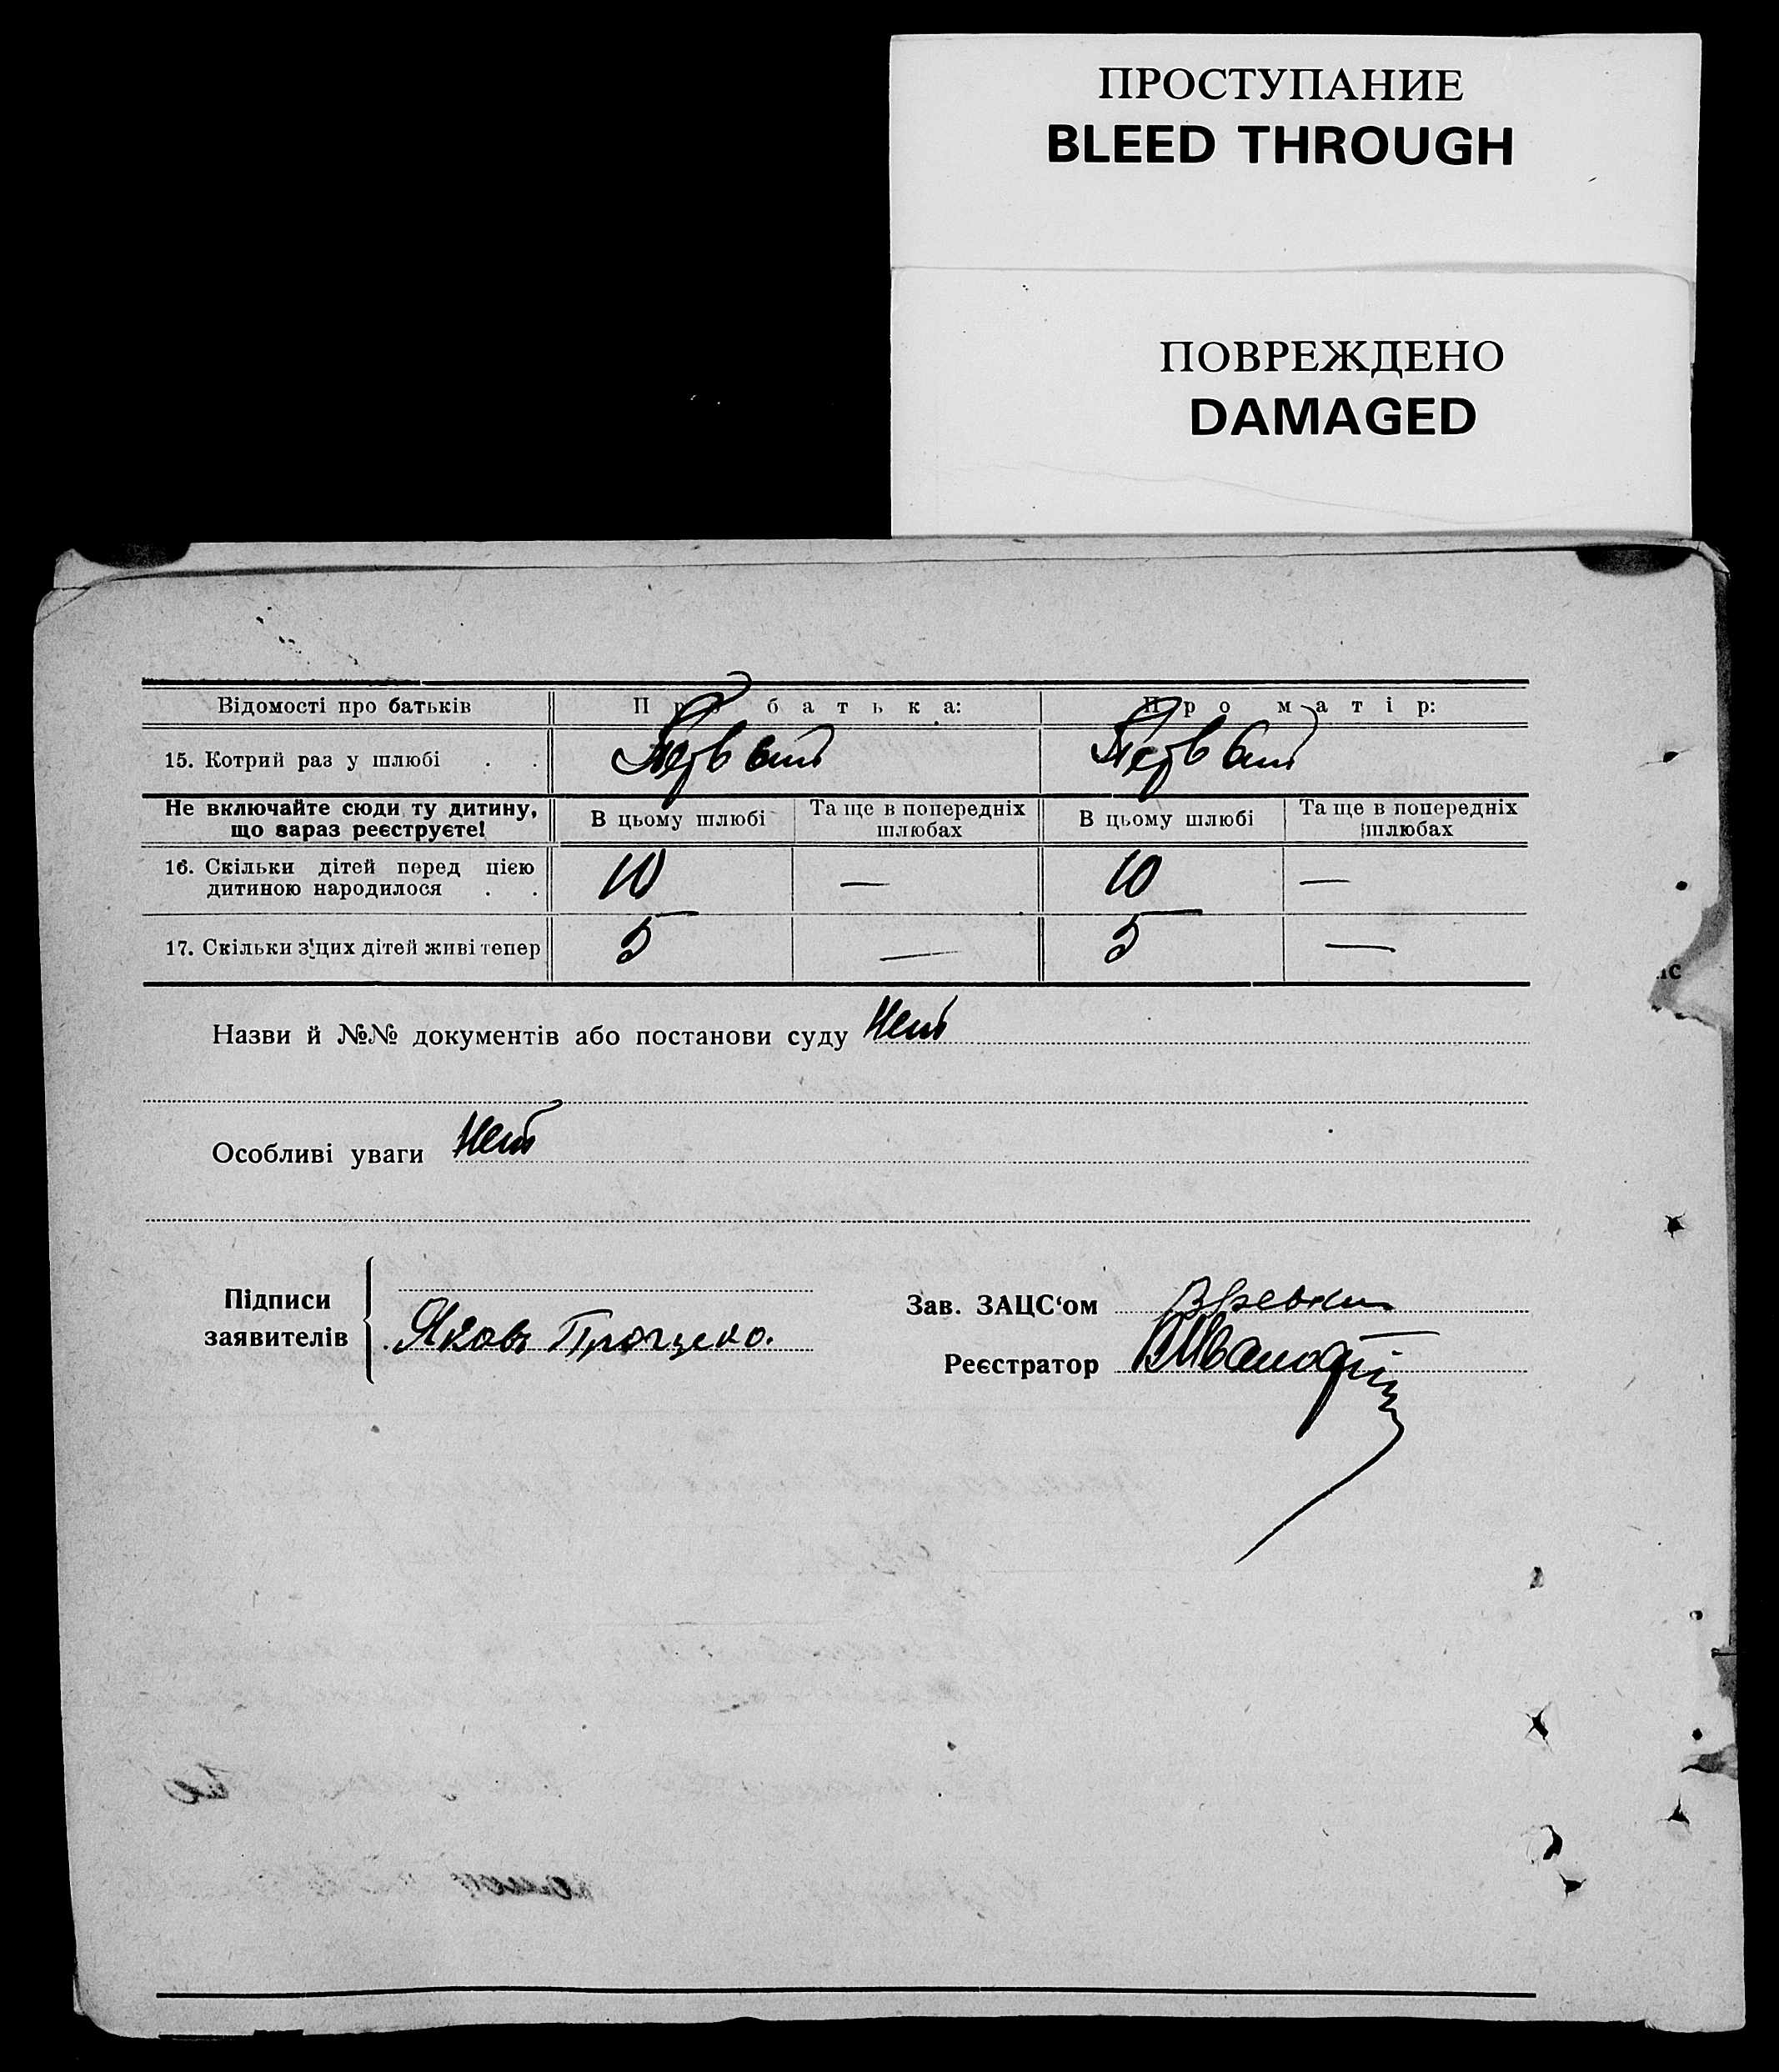 ПРОСТУПАНИЕ
BLEED THROUGH
ПОВРЕЖДЕНО
DAMAGED
Відомості про батьків Про батька: Про матір:
15. Котрий раз у шлюбі . . Первый Первый
Не включайте сюди ту дитину, що зараз реєструєте! В цьому шлюбі Та ще в попередніх шлюбах В цьому шлюбі Та ще в попередніх шлюбах
16. Скільки дітей перед цією дитиною народилося . . 10 — 10 —
17. Скільки з цих дітей живі тепер 5 — 5 —
Назви й №№ документів або постанови суду Нет
Особливі уваги Нет
Підписи заявителів Яковъ
Зав. ЗАЦС‘ом
Реєстратор